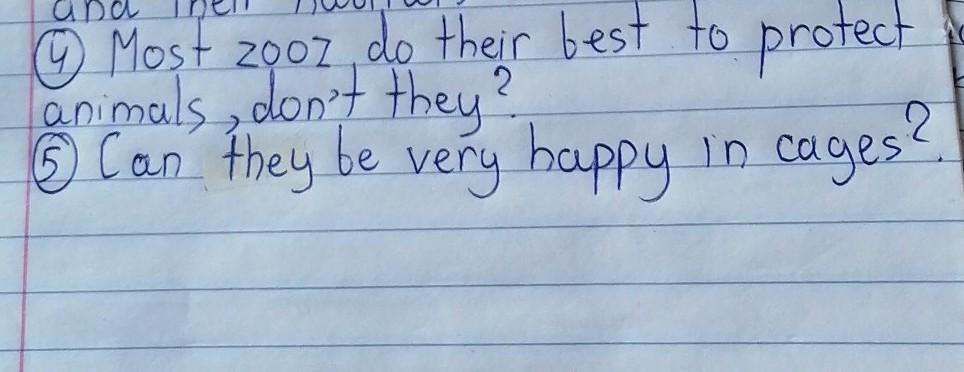 and their
④ Most zooz do their best to protect
animals, don't they?
⑤ Can they be very happy in cages?